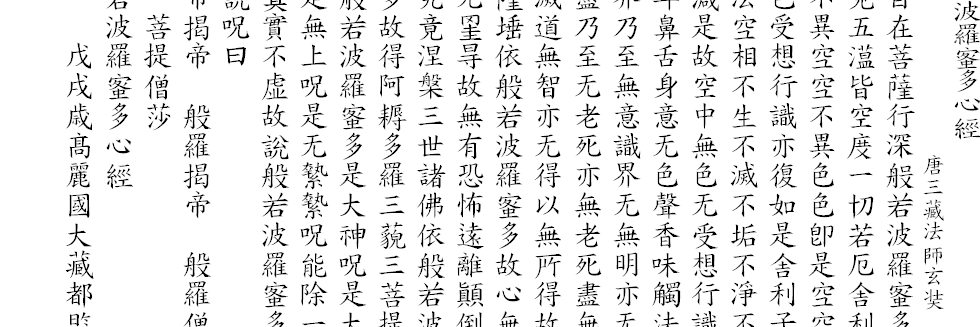 波羅蜜多心經
唐三藏法師玄奘
自在菩薩行深般若波羅蜜多
見五薀皆空度一切若厄舍利
不異空空不異色色卽是空空
受想行識亦復如是舍利子
法空相不生不滅不垢不淨不
滅是故空中無色无受想行識
耳鼻舌身意无色聲香味觸法
界乃至無意識界无無明亦无
盡乃至无老死亦無老死盡無
滅道無智亦无得以無所得故
薩埵依般若波羅蜜多故心無
无罣㝵故無有恐怖遠離顚倒
究竟涅槃三世諸佛依般若波
多故得阿耨多羅三藐三菩提
般若波羅蜜多是大神呪是大
是無上呪是无䓁䓁呪能除一
眞實不虛故說般若波羅蜜多
說呪曰
揭帝 般羅揭帝 般羅僧
菩提僧莎
若波羅蜜多心經
戊戌歲髙麗國大藏都監